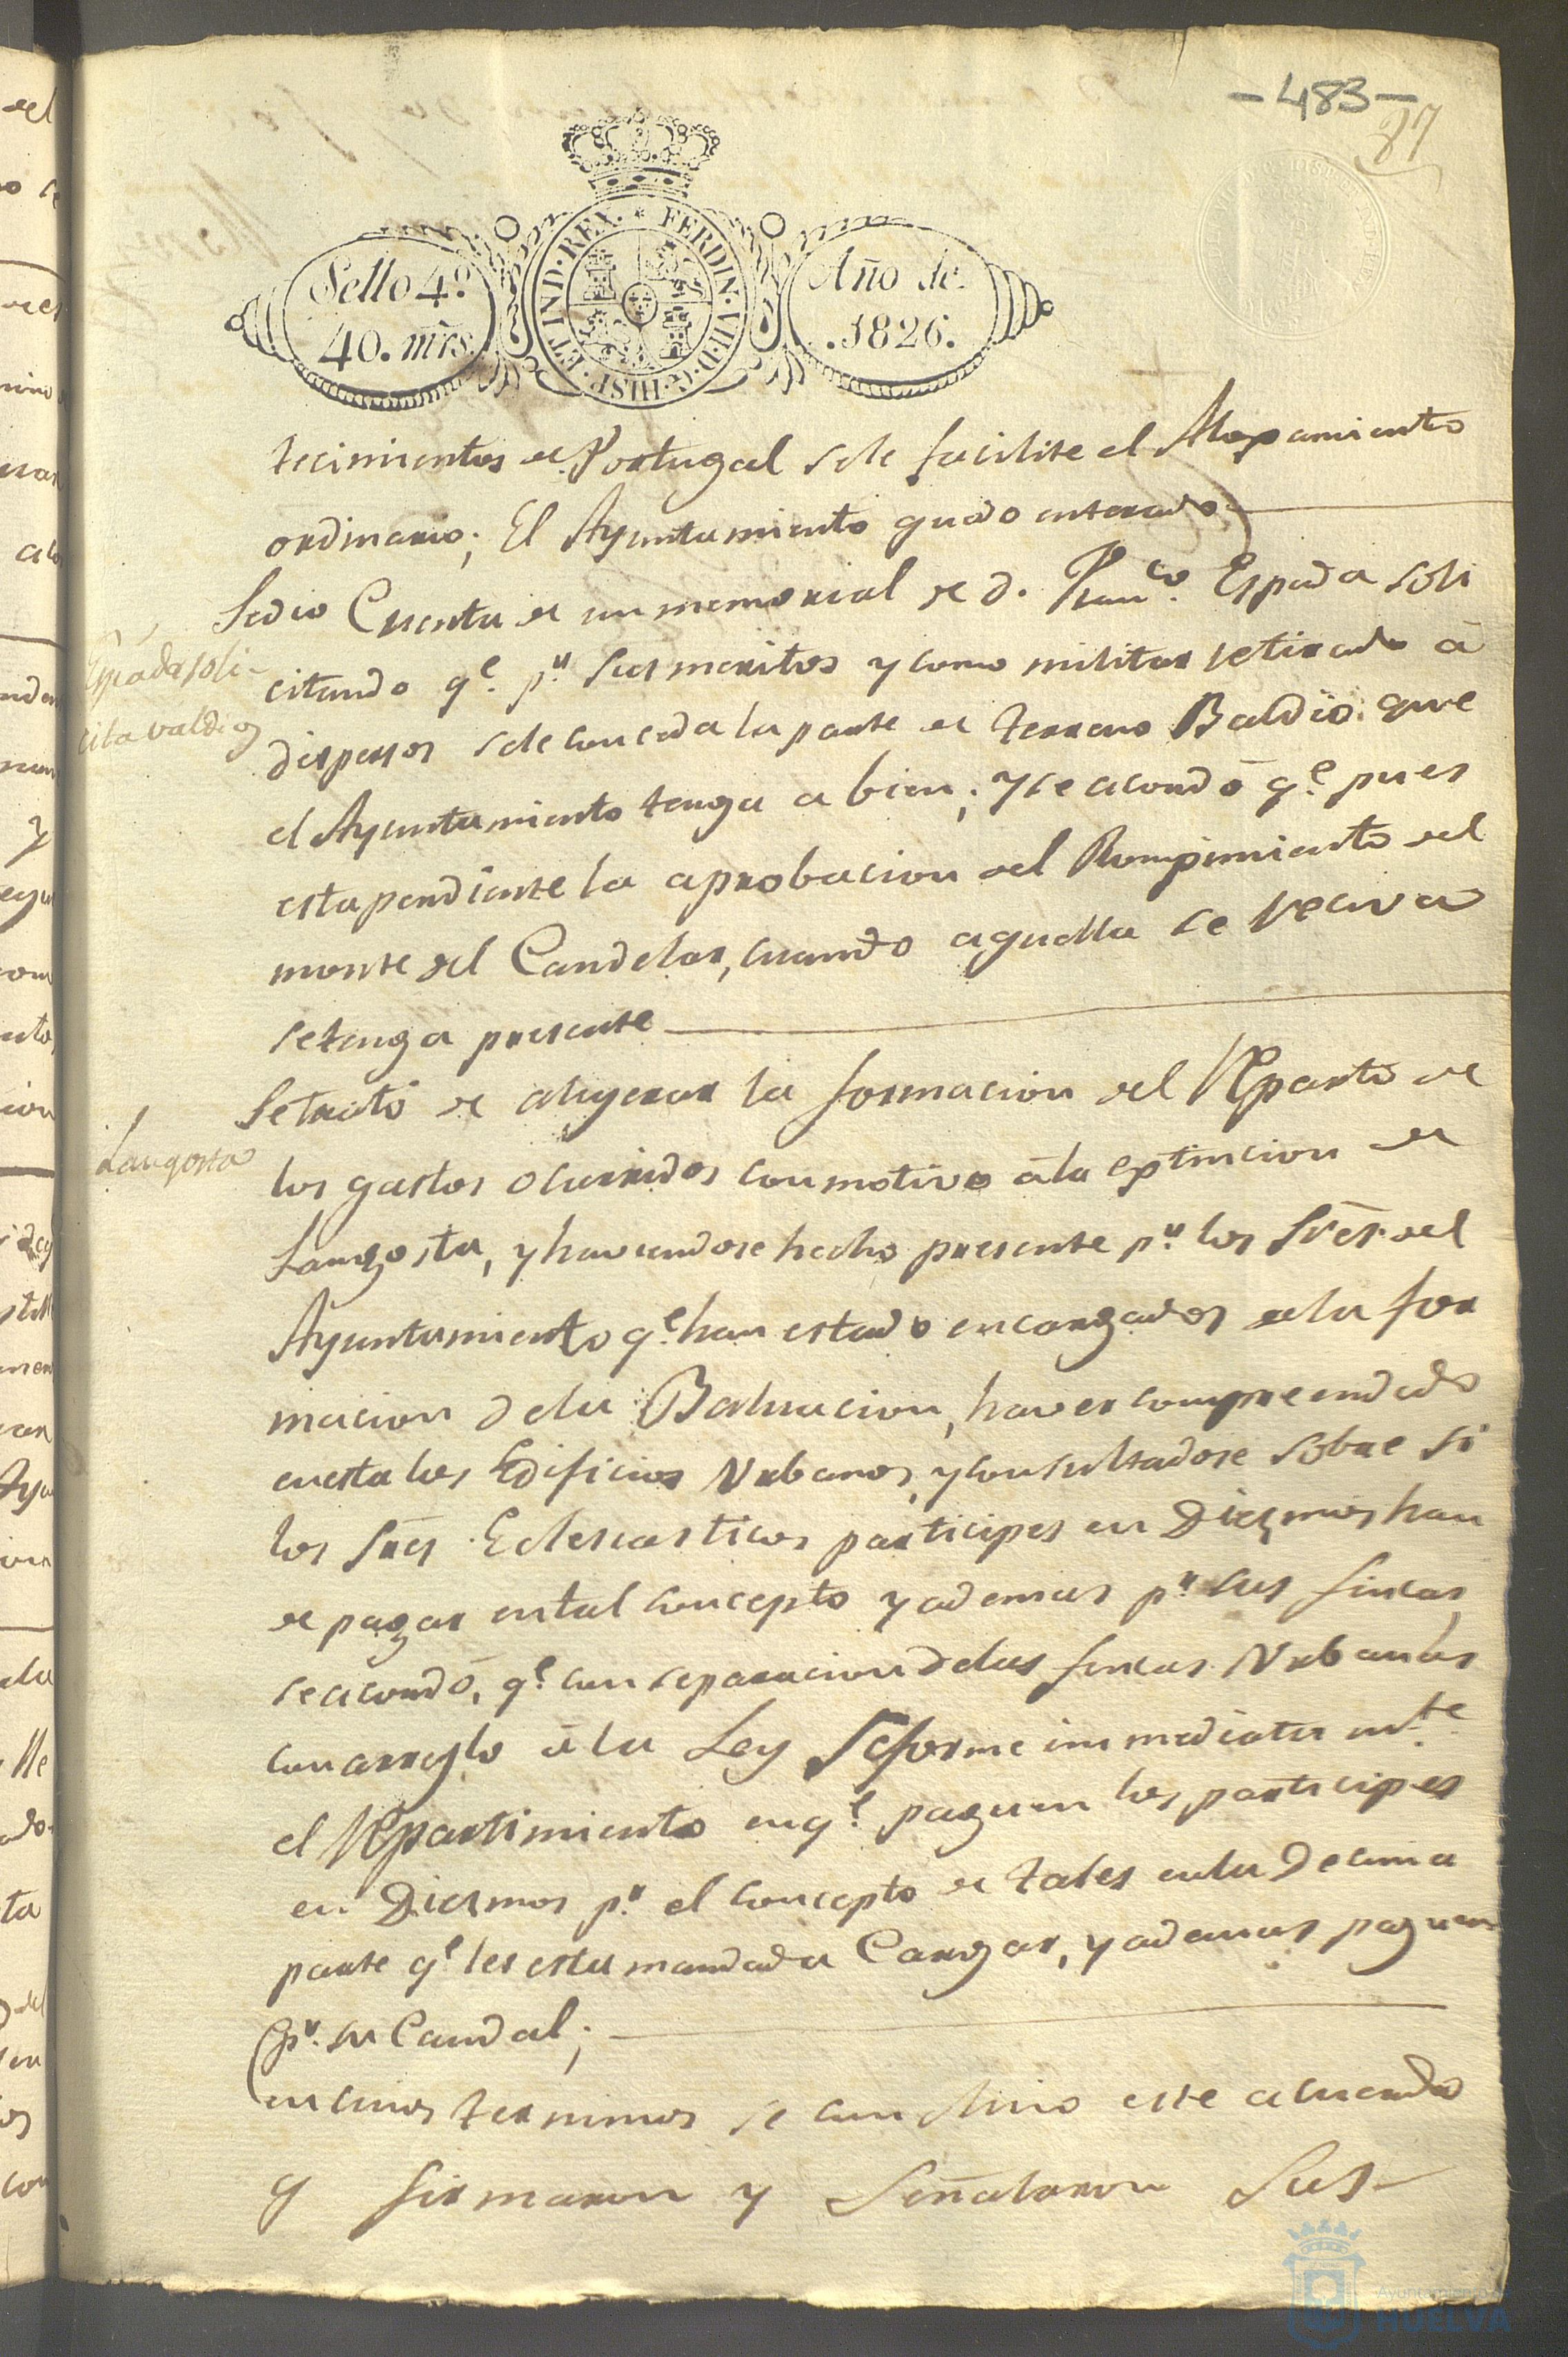 -483-
87
Sello 4º.
40. mrs.
HISP. ET IND. REX. * FERDIN. VII. D. G.
Año de
.1826.
tecimientos de Portugal sele facilite el Aloxamiento
ordinario; El Ayuntamiento quedo enterado
Sedio Cuenta de un memorial de d. Franco. Espada soli
Espada soli-
cita valdios
citando qe. pr. sus meritos y como militar retirado á
dispersos sele conceda la parte de terreno Baldio que
el Ayuntamiento tenga a bien; y se acordó qe. pues
esta pendiente la aprobacion del Rompimiento del
monte del Candelar, cuando aquella se reciva
setenga presente
Setrató de aligerar la formacion del Reparto de
Langosta
los gastos ocurridos con motivo á la extincion de
Langosta, y haviendose hecho presente pr. los Sres. del
Ayuntamiento qe. han estado encargados dela for
macion dela Baluacion, haver comprendido
en esta los Edificios Urbanos, y consultadose sobre si
los Sres. Eclesiasticos participes en Diezmos han
de pagar en tal concepto y ademas pr. sus fincas,
se acordó, qe. con separacion delas fincas Urbanas
con arreglo á la Ley se forme inmediatamte.
el Repartimiento en qe. paguen los participes
en Diezmos pr. el concepto de tales en la Decima
parte qe. les esta mandada Cargar, y ademas paguen
pr. su Caudal;
en cuios terminos se concluio este acuerdo
y firmaron y Señalaron Sus
Ayuntamiento de
HUELVA